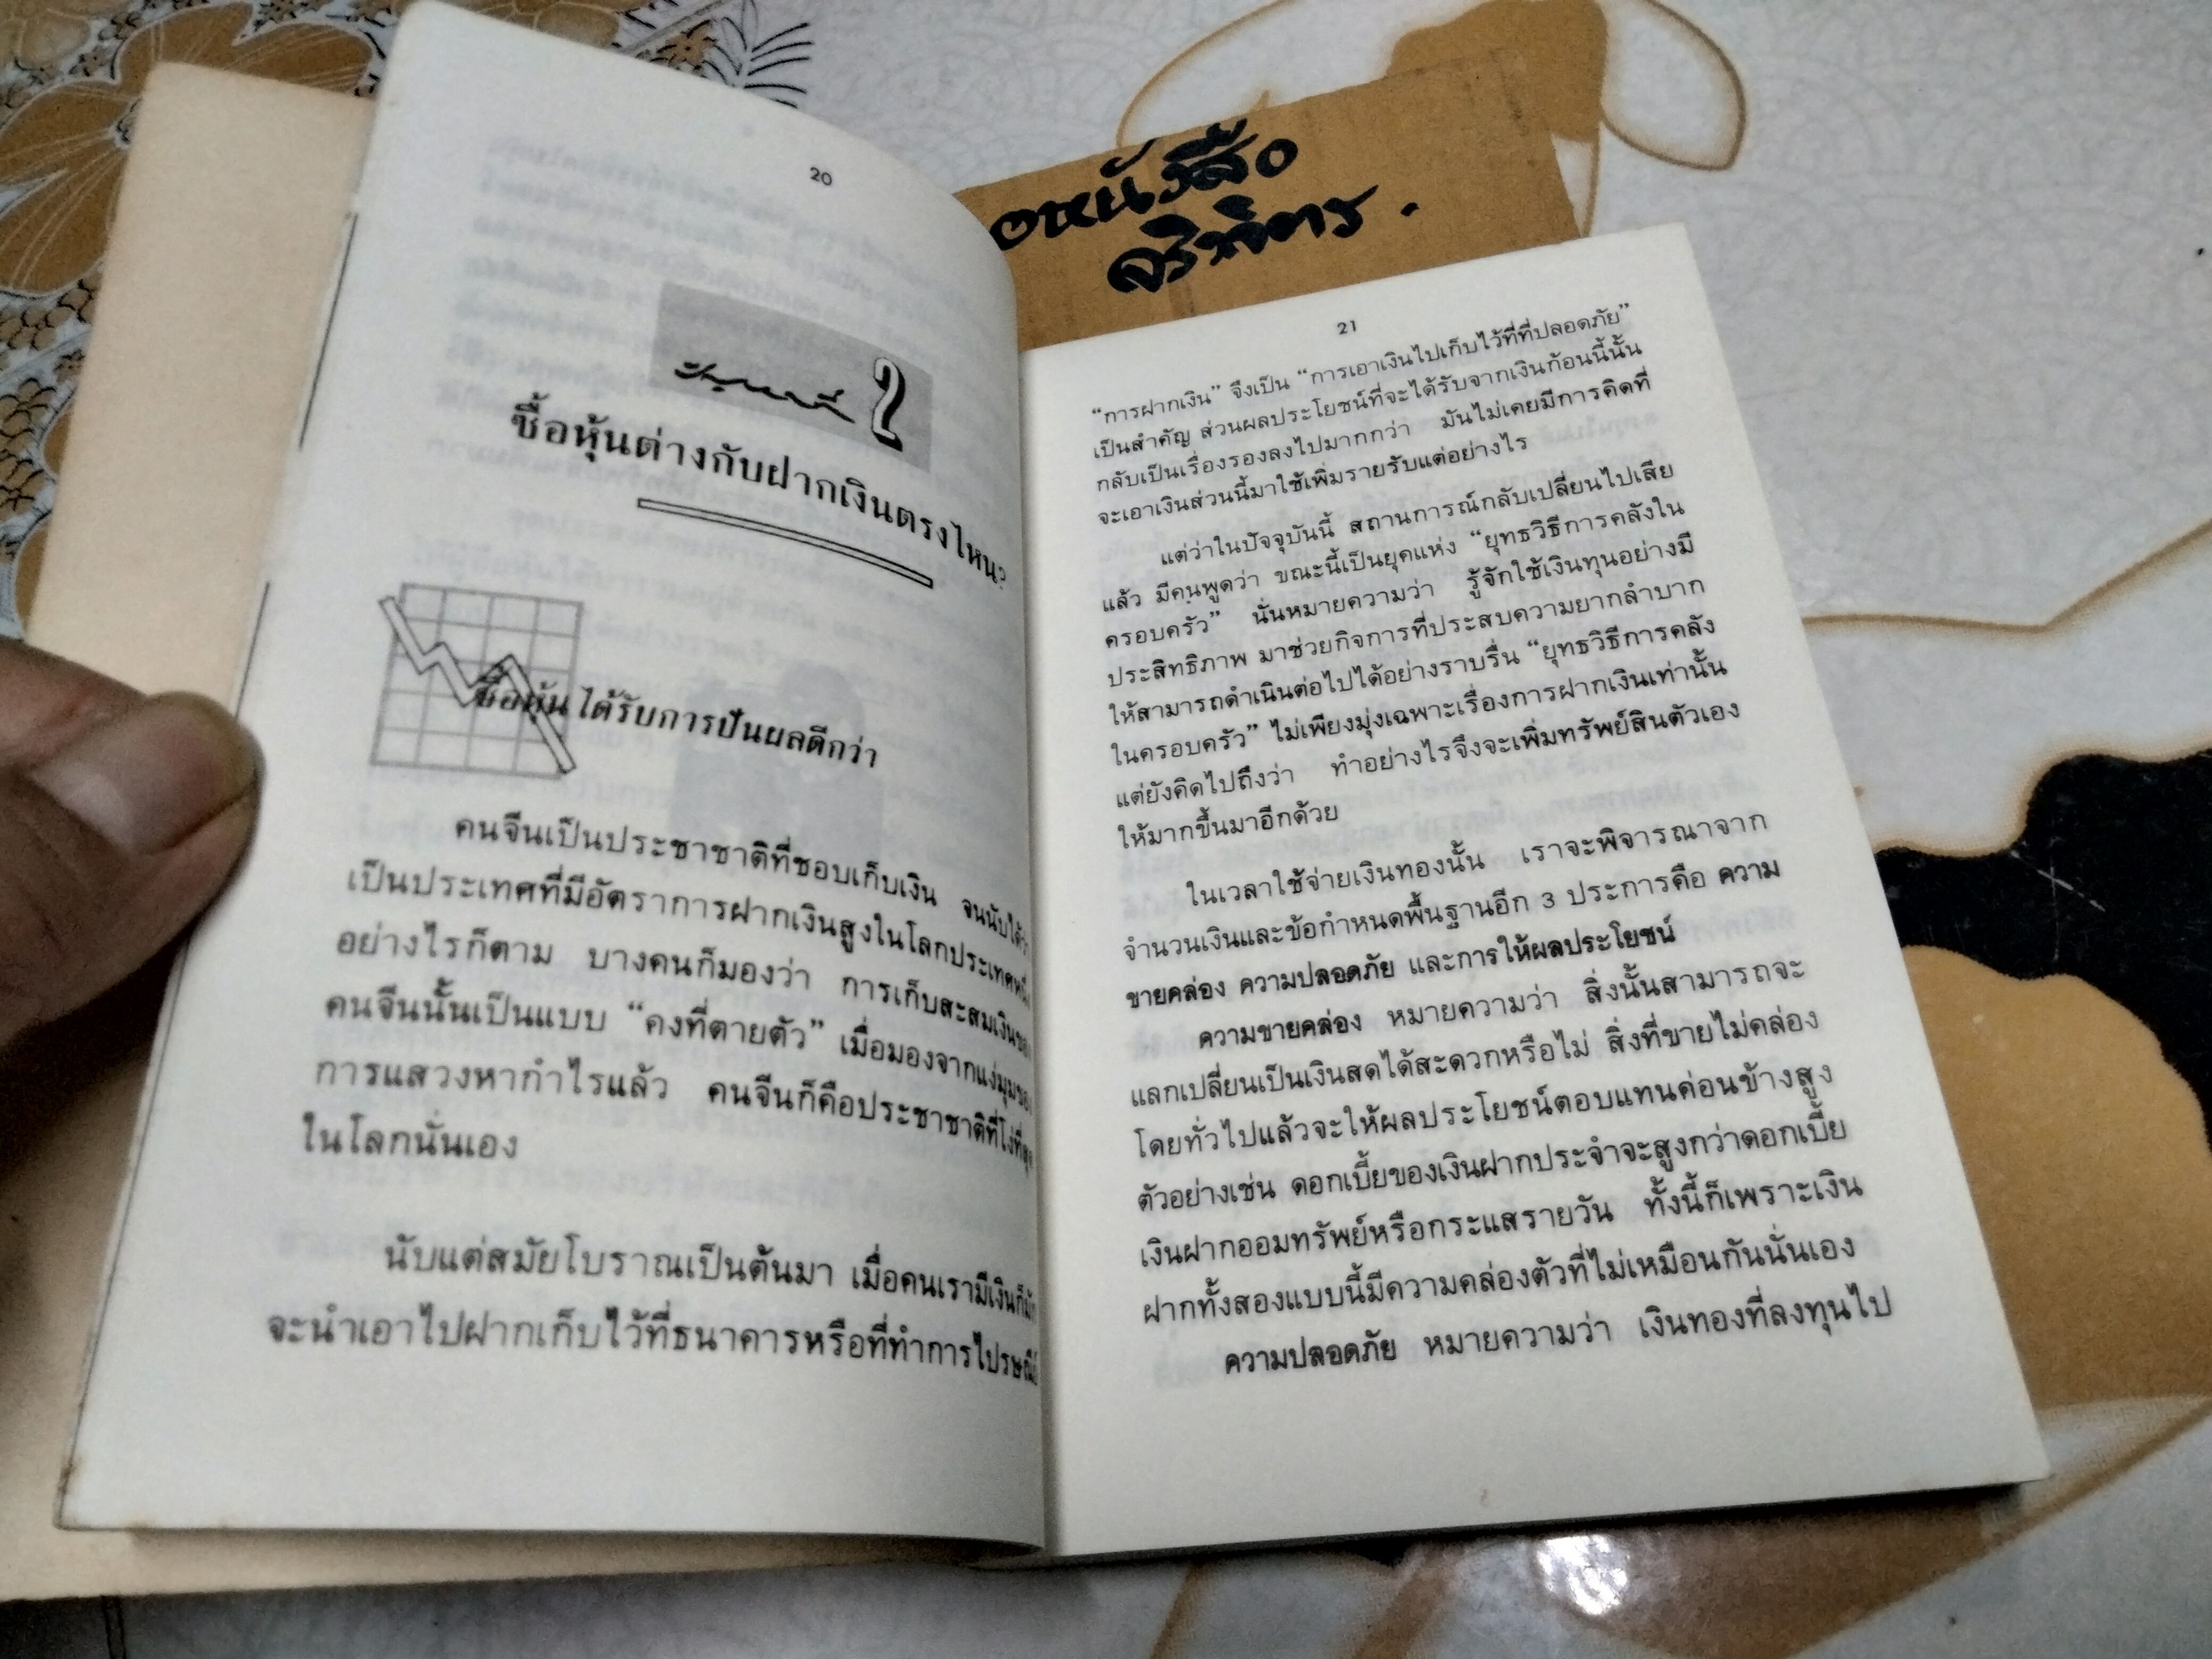 20
2
ซื้อหุ้นต่างกับฝากเงินตรงไหน?
ซื้อหุ้นได้รับการปันผลดีกว่า
คนจีนเป็นประชาชาติที่ชอบเก็บเงิน จนนับได้ว่า
เป็นประเทศที่มีอัตราการฝากเงินสูงในโลกประเทศหนึ่ง
อย่างไรก็ตาม บางคนก็มองว่า การเก็บสะสมเงินของ
คนจีนนั้นเป็นแบบ “คงที่ตายตัว” เมื่อมองจากแง่มุมของ
การแสวงหากำไรแล้ว คนจีนก็คือประชาชาติที่โง่ที่สุด
ในโลกนั่นเอง
นับแต่สมัยโบราณเป็นต้นมา เมื่อคนเรามีเงินก็มัก
จะนำเอาไปฝากเก็บไว้ที่ธนาคารหรือที่ทำการไปรษณีย์
หนังสือ
21
“การฝากเงิน” จึงเป็น “การเอาเงินไปเก็บไว้ที่ที่ปลอดภัย”
เป็นสำคัญ ส่วนผลประโยชน์ที่จะได้รับจากเงินก้อนนี้นั้น
กลับเป็นเรื่องรองลงไปมากกว่า มันไม่เคยมีการคิดที่
จะเอาเงินส่วนนี้มาใช้เพิ่มรายรับแต่อย่างไร
แต่ว่าในปัจจุบันนี้ สถานการณ์กลับเปลี่ยนไปเสีย
แล้ว มีคนพูดว่า ขณะนี้เป็นยุคแห่ง “ยุทธวิธีการคลังใน
ครอบครัว” นั่นหมายความว่า รู้จักใช้เงินทุนอย่างมี
ประสิทธิภาพ มาช่วยกิจการที่ประสบความยากลำบาก
ให้สามารถดำเนินต่อไปได้อย่างราบรื่น “ยุทธวิธีการคลัง
ในครอบครัว” ไม่เพียงมุ่งเฉพาะเรื่องการฝากเงินเท่านั้น
แต่ยังคิดไปถึงว่า ทำอย่างไรจึงจะเพิ่มทรัพย์สินตัวเอง
ให้มากขึ้นมาอีกด้วย
ในเวลาใช้จ่ายเงินทองนั้น เราจะพิจารณาจาก
จำนวนเงินและข้อกำหนดพื้นฐานอีก 3 ประการคือ ความ
ขายคล่อง ความปลอดภัย และการให้ผลประโยชน์
ความขายคล่อง หมายความว่า สิ่งนั้นสามารถจะ
แลกเปลี่ยนเป็นเงินสดได้สะดวกหรือไม่ สิ่งที่ขายไม่คล่อง
โดยทั่วไปแล้วจะให้ผลประโยชน์ตอบแทนค่อนข้างสูง
ตัวอย่างเช่น ดอกเบี้ยของเงินฝากประจำจะสูงกว่าดอกเบี้ย
เงินฝากออมทรัพย์หรือกระแสรายวัน ทั้งนี้ก็เพราะเงิน
ฝากทั้งสองแบบนี้มีความคล่องตัวที่ไม่เหมือนกันนั่นเอง
ความปลอดภัย หมายความว่า เงินทองที่ลงทุนไป